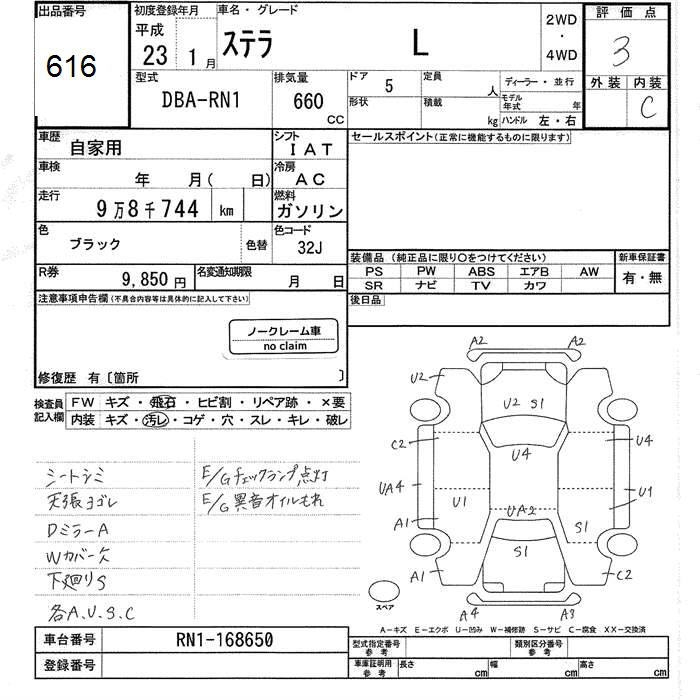 出品番号
616
初度登録年月
平成
23 1月
車名・グレード
ステラ L
2WD
・
4WD
評価点
3
外装 内装
C
型式
DBA-RN1
排気量
660
CC
ドア 5
定員 人
形状
積載 kg
ディーラー・並行
モデル年式 年
ハンドル 左・右
車歴
自家用
シフト
IAT
セールスポイント(正常に機能するものに限ります)
車検
年 月( 日)
冷房
AC
走行
9万8千744 km
燃料
ガソリン
色
ブラック
色替
色コード
32J
装備品(純正品に限り○をつけてください)
新車保証書
PS PW ABS エアB AW
SR ナビ TV カワ
有・無
R券
9,850円
名変通知期限
月 日
後日品
注意事項申告欄(不具合内容等は具体的に記入して下さい)
ノークレーム車
no claim
修復歴 有〔箇所 〕
検査員記入欄
FW キズ・飛石・ヒビ割・リペア跡・×要
内装 キズ・汚レ・コゲ・穴・スレ・キレ・破レ
シートシミ
天張ヨゴレ
DミラーA
Wカバー欠
下廻りS
各A.U.S.C
E/Gチェックランプ点灯
E/G異音オイルもれ
A2 A2
U2
U2 S1
C2 U4 U4
UA4 U1 U1
UA2
A1 S1
S1
A1 C2
A4 A3
スペア
A-キズ E-エクボ U-凹み W-補修跡 S-サビ C-腐食 XX-交換済
車台番号
RN1-168650
登録番号
型式指定番号
参考
類別区分番号
参考
車庫証明用
参考
長さ cm
幅 cm
高さ cm